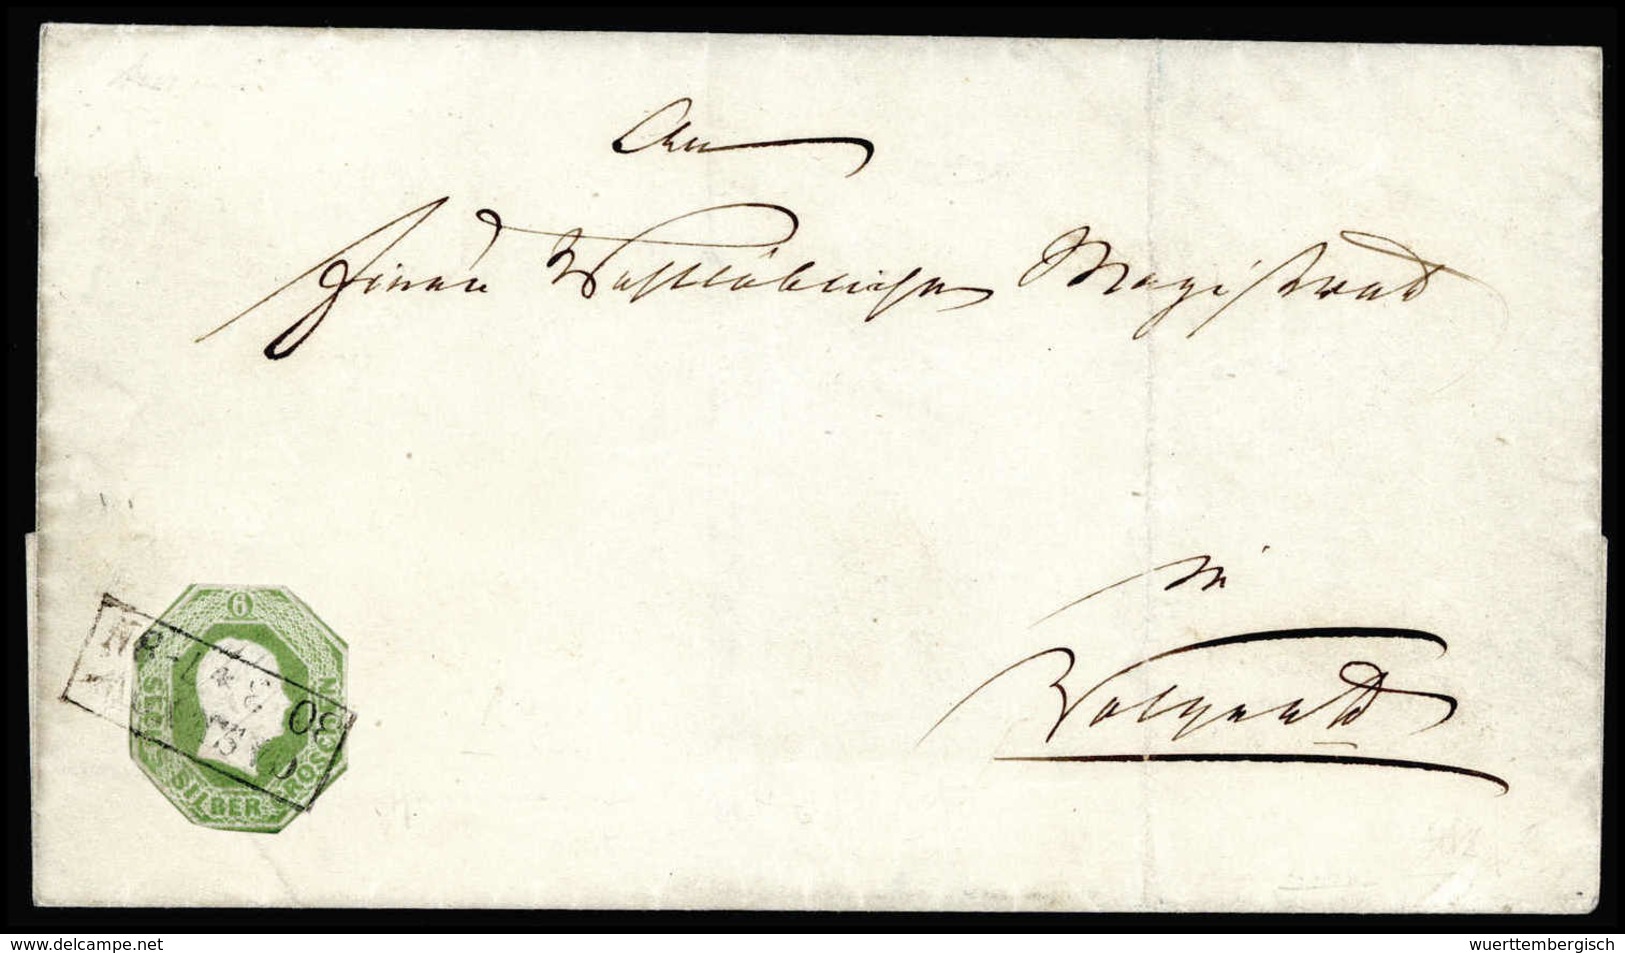 An
Einen Wohllöblichen Magistrat
in
Wolgast
6
SECHS SILBER GROSCHEN
30
www.delcampe.net
wuerttembergisch